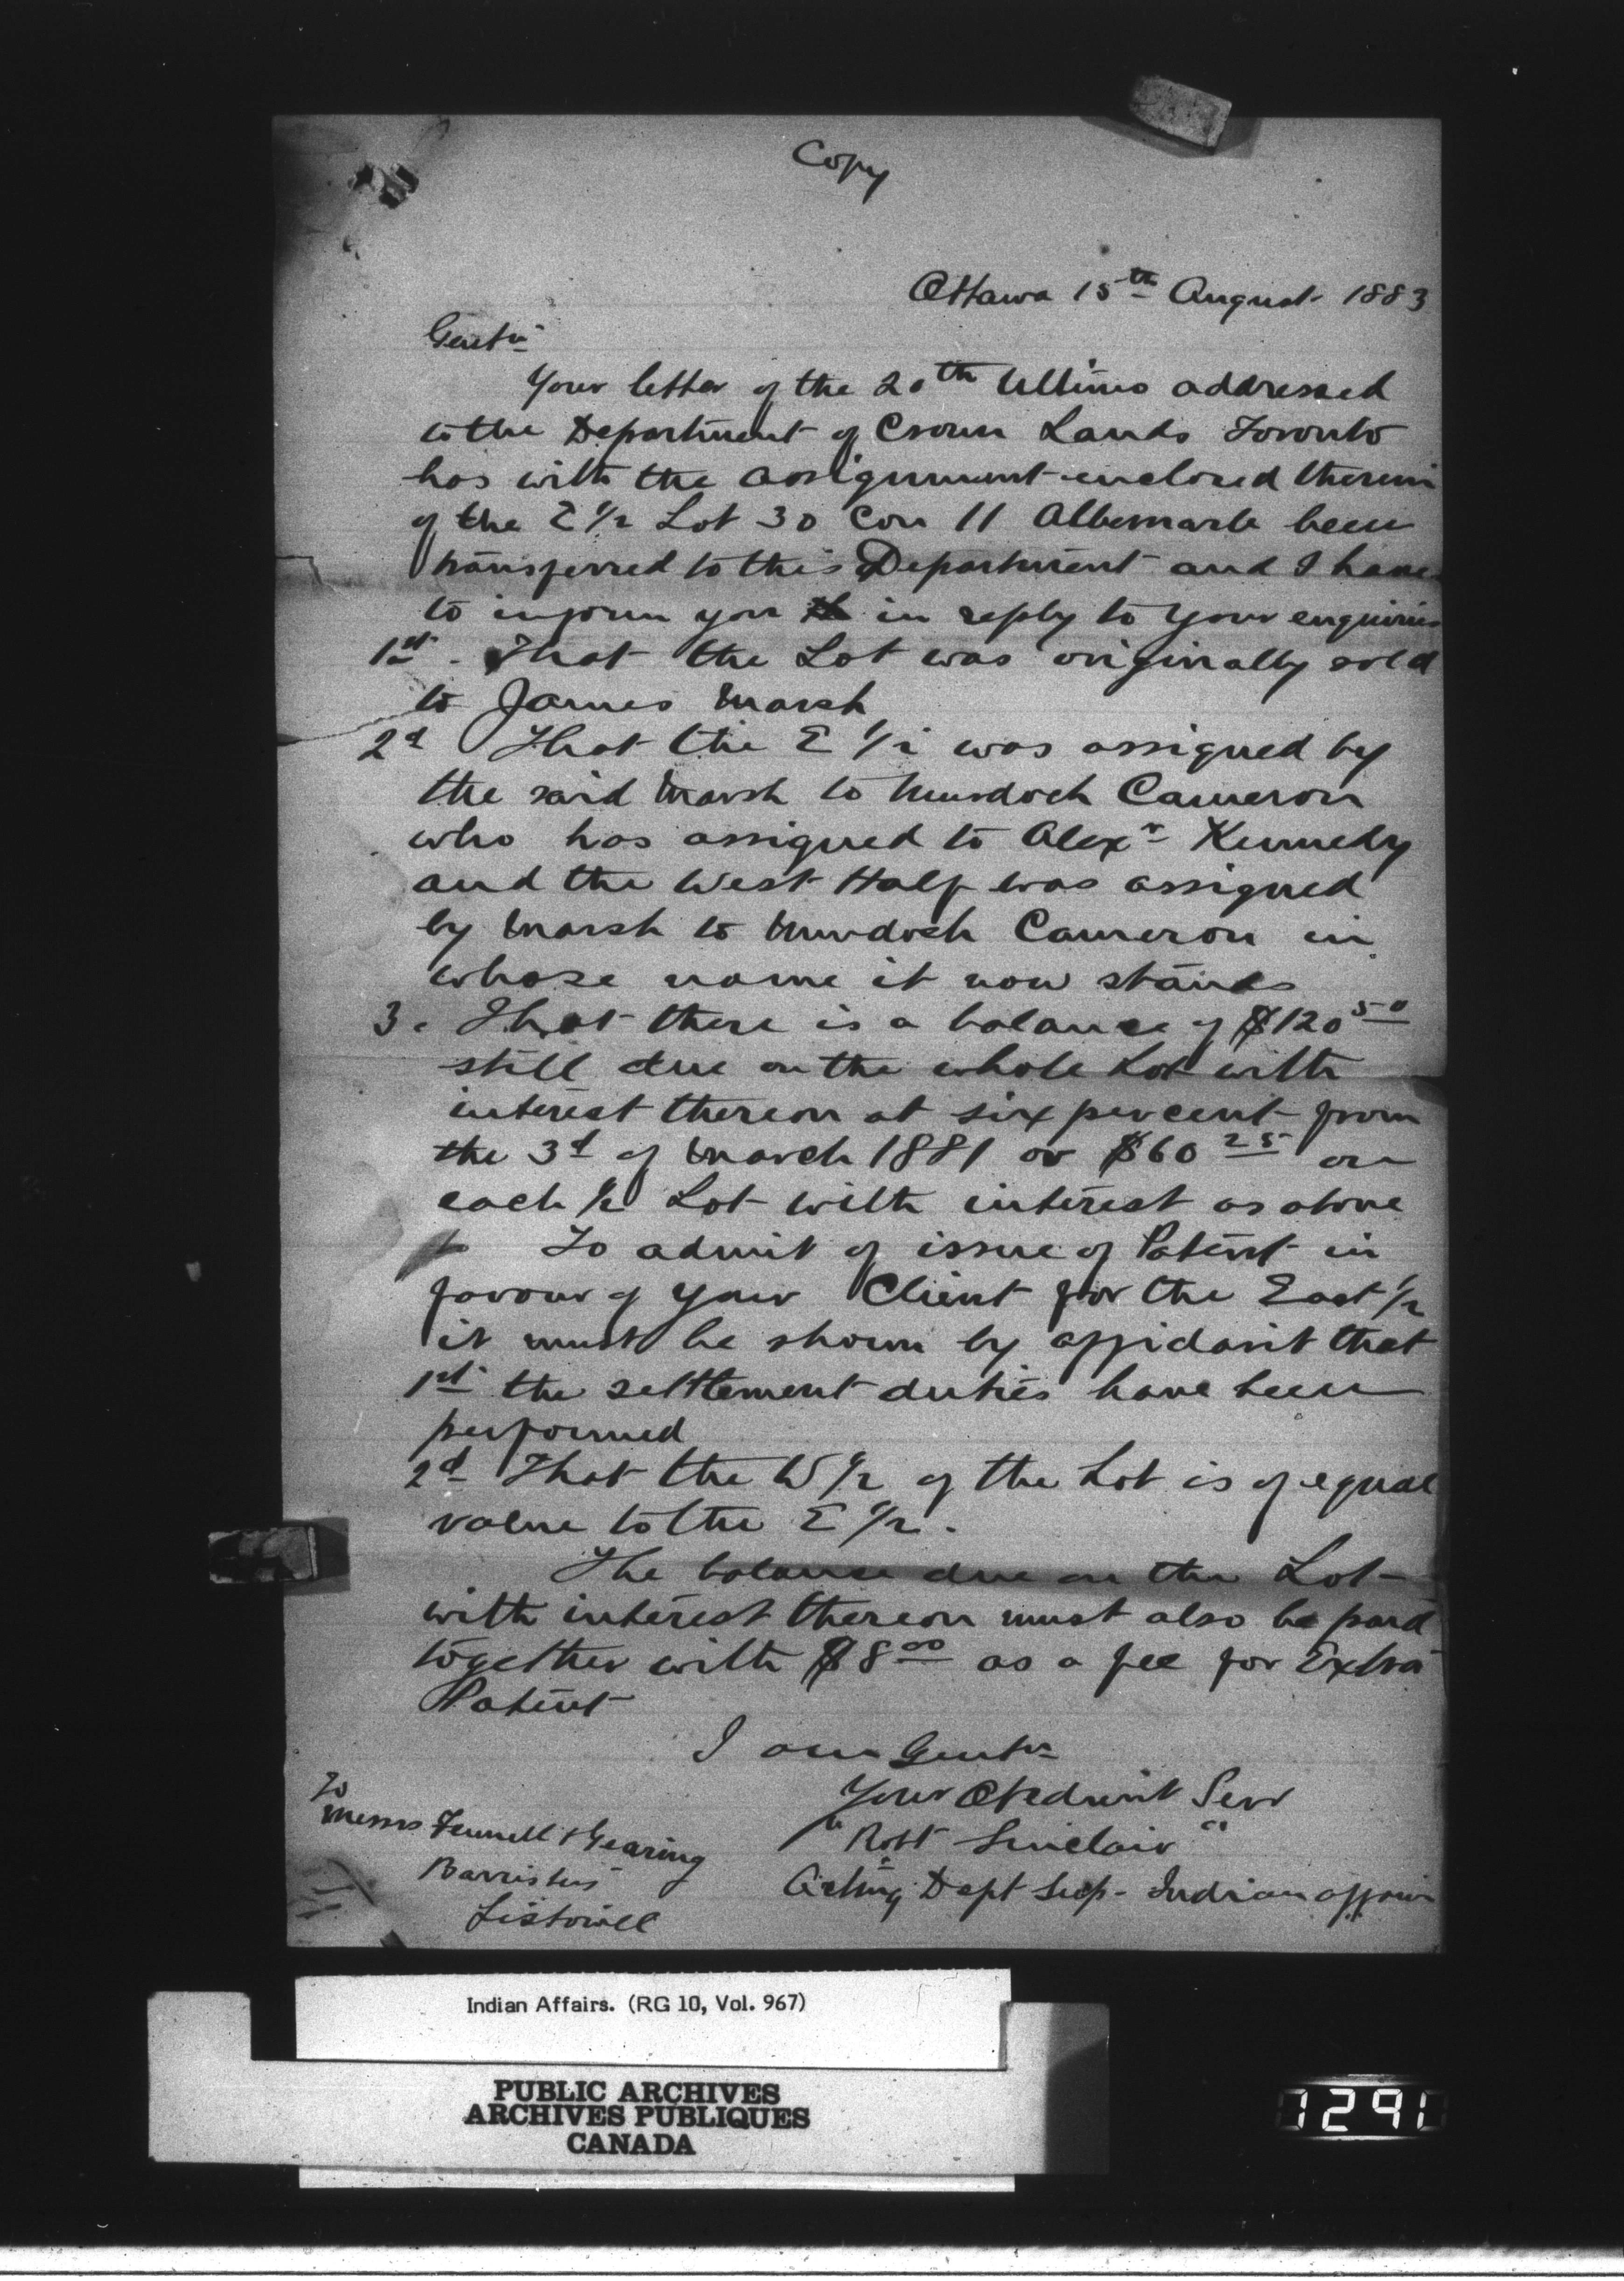 Copy
Ottawa 15th August 1883
Gentn
Your letter of the 20th Ultimo addressed
to the Department of Crown Lands Toronto
has with the assignment enclosed therein
of the E 1/2 Lot 30 Con 11 Albemarle been
transferred to this Department and I have
to inform you in reply to your enquiries
1st. That the Lot was originally sold
to James Marsh
2d That the E 1/2 was assigned by
the said Marsh to Murdoch Cameron
who has assigned to Alexr Kennedy
and the West Half was assigned
by Marsh to Murdoch Cameron in
whose name it now stands
3. That there is a balance of $120 50
still due on the whole Lot with
interest thereon at six per cent from
the 3d of March 1881 or $60 25 on
each 1/2 Lot with interest as above
To admit of issue of Patent in
favour of your Client for the East 1/2
it must be shown by affidavit that
1st the settlement duties have been
performed
2d That the W 1/2 of the Lot is of equal
value to the E 1/2.
The balance due on the Lot
with interest thereon must also be paid
together with $8 00 as a fee for Extra
Patent
I am Gentn
Your Obedient Serv
"Robt Sinclair"
Acting Dept Sup. Indian Affairs
To
Messrs Fennell & Gearing
Barristers
Listowell
Indian Affairs. (RG 10, Vol. 967)
PUBLIC ARCHIVES
ARCHIVES PUBLIQUES
CANADA
1291